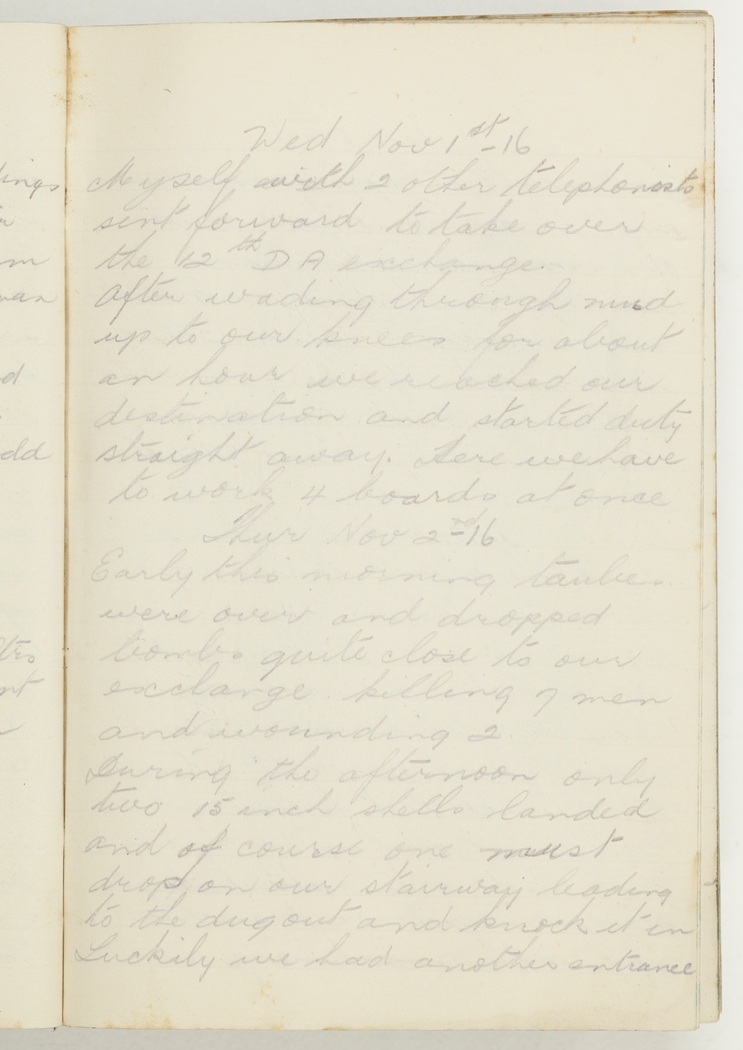 Wed Nov 1st-16
Myself with 2 other telephonists
sent forward to take over
the 12th D A exchange.
After wading through mud
up to our knees for about
an hour we reached our
destination and started duty
straight away. Here we have
to work 4 boards at once
Thur Nov 2nd-16
Early this morning taubes
were over and dropped
bombs quite close to our
exchange killing 7 men
and wounding 2
During the afternoon only
two 15 inch shells landed
and of course one must
drop on our stairway leading
to the dugout and knock it in
Luckily we had another entrance